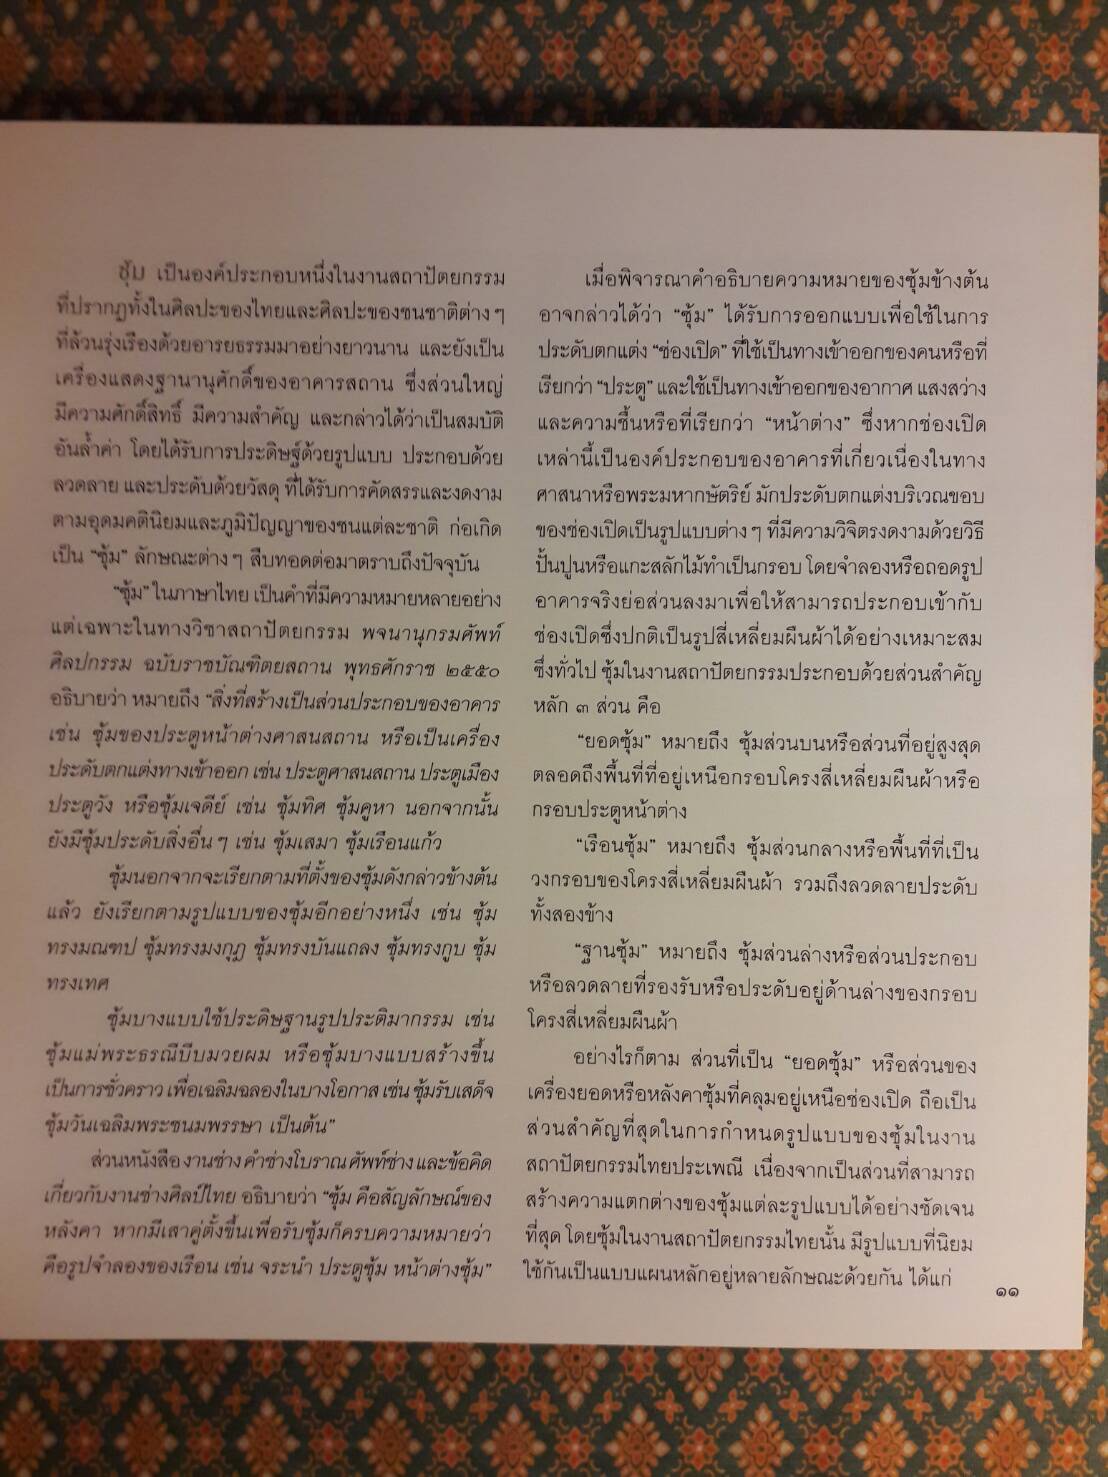 ซุ้ม เป็นองค์ประกอบหนึ่งในงานสถาปัตยกรรม
ที่ปรากฏทั้งในศิลปะของไทยและศิลปะของชนชาติต่าง ๆ
ที่ล้วนรุ่งเรืองด้วยอารยธรรมมาอย่างยาวนาน และยังเป็น
เครื่องแสดงฐานานุศักดิ์ของอาคารสถาน ซึ่งส่วนใหญ่
มีความศักดิ์สิทธิ์ มีความสำคัญ และกล่าวได้ว่าเป็นสมบัติ
อันล้ำค่า โดยได้รับการประดิษฐ์ด้วยรูปแบบ ประกอบด้วย
ลวดลาย และประดับด้วยวัสดุ ที่ได้รับการคัดสรรและงดงาม
ตามอุดมคตินิยมและภูมิปัญญาของชนแต่ละชาติ ก่อเกิด
เป็น “ซุ้ม” ลักษณะต่าง ๆ สืบทอดต่อมาตราบถึงปัจจุบัน
“ซุ้ม” ในภาษาไทย เป็นคำที่มีความหมายหลายอย่าง
แต่เฉพาะในทางวิชาสถาปัตยกรรม พจนานุกรมศัพท์
ศิลปกรรม ฉบับราชบัณฑิตยสถาน พุทธศักราช ๒๕๕๐
อธิบายว่า หมายถึง “สิ่งที่สร้างเป็นส่วนประกอบของอาคาร
เช่น ซุ้มของประตูหน้าต่างศาสนสถาน หรือเป็นเครื่อง
ประดับตกแต่งทางเข้าออก เช่น ประตูศาสนสถาน ประตูเมือง
ประตูวัง หรือซุ้มเจดีย์ เช่น ซุ้มทิศ ซุ้มคูหา นอกจากนั้น
ยังมีซุ้มประดับสิ่งอื่น ๆ เช่น ซุ้มเสมา ซุ้มเรือนแก้ว
ซุ้มนอกจากจะเรียกตามที่ตั้งของซุ้มดังกล่าวข้างต้น
แล้ว ยังเรียกตามรูปแบบของซุ้มอีกอย่างหนึ่ง เช่น ซุ้ม
ทรงมณฑป ซุ้มทรงมงกุฎ ซุ้มทรงบันแถลง ซุ้มทรงกูบ ซุ้ม
ทรงเทศ
ซุ้มบางแบบใช้ประดิษฐานรูปประติมากรรม เช่น
ซุ้มแม่พระธรณีบีบมวยผม หรือซุ้มบางแบบสร้างขึ้น
เป็นการชั่วคราว เพื่อเฉลิมฉลองในบางโอกาส เช่น ซุ้มรับเสด็จ
ซุ้มวันเฉลิมพระชนมพรรษา เป็นต้น”
ส่วนหนังสือ งานช่าง คำช่างโบราณ ศัพท์ช่าง และข้อคิด
เกี่ยวกับงานช่างศิลป์ไทย อธิบายว่า “ซุ้ม คือสัญลักษณ์ของ
หลังคา หากมีเสาคู่ตั้งขึ้นเพื่อรับซุ้มก็ครบความหมายว่า
คือรูปจำลองของเรือน เช่น จระนำ ประตูซุ้ม หน้าต่างซุ้ม”
เมื่อพิจารณาคำอธิบายความหมายของซุ้มข้างต้น
อาจกล่าวได้ว่า “ซุ้ม” ได้รับการออกแบบเพื่อใช้ในการ
ประดับตกแต่ง “ช่องเปิด” ที่ใช้เป็นทางเข้าออกของคนหรือที่
เรียกว่า “ประตู” และใช้เป็นทางเข้าออกของอากาศ แสงสว่าง
และความชื้นหรือที่เรียกว่า “หน้าต่าง” ซึ่งหากช่องเปิด
เหล่านี้เป็นองค์ประกอบของอาคารที่เกี่ยวเนื่องในทาง
ศาสนาหรือพระมหากษัตริย์ มักประดับตกแต่งบริเวณขอบ
ของช่องเปิดเป็นรูปแบบต่าง ๆ ที่มีความวิจิตรงดงามด้วยวิธี
ปั้นปูนหรือแกะสลักไม้ทำเป็นกรอบ โดยจำลองหรือถอดรูป
อาคารจริงย่อส่วนลงมาเพื่อให้สามารถประกอบเข้ากับ
ช่องเปิดซึ่งปกติเป็นรูปสี่เหลี่ยมผืนผ้าได้อย่างเหมาะสม
ซึ่งทั่วไป ซุ้มในงานสถาปัตยกรรมประกอบด้วยส่วนสำคัญ
หลัก ๓ ส่วน คือ
“ยอดซุ้ม” หมายถึง ซุ้มส่วนบนหรือส่วนที่อยู่สูงสุด
ตลอดถึงพื้นที่ที่อยู่เหนือกรอบโครงสี่เหลี่ยมผืนผ้าหรือ
กรอบประตูหน้าต่าง
“เรือนซุ้ม” หมายถึง ซุ้มส่วนกลางหรือพื้นที่ที่เป็น
วงกรอบของโครงสี่เหลี่ยมผืนผ้า รวมถึงลวดลายประดับ
ทั้งสองข้าง
“ฐานซุ้ม” หมายถึง ซุ้มส่วนล่างหรือส่วนประกอบ
หรือลวดลายที่รองรับหรือประดับอยู่ด้านล่างของกรอบ
โครงสี่เหลี่ยมผืนผ้า
อย่างไรก็ตาม ส่วนที่เป็น “ยอดซุ้ม” หรือส่วนของ
เครื่องยอดหรือหลังคาซุ้มที่คลุมอยู่เหนือช่องเปิด ถือเป็น
ส่วนสำคัญที่สุดในการกำหนดรูปแบบของซุ้มในงาน
สถาปัตยกรรมไทยประเพณี เนื่องจากเป็นส่วนที่สามารถ
สร้างความแตกต่างของซุ้มแต่ละรูปแบบได้อย่างชัดเจน
ที่สุด โดยซุ้มในงานสถาปัตยกรรมไทยนั้น มีรูปแบบที่นิยม
ใช้กันเป็นแบบแผนหลักอยู่หลายลักษณะด้วยกัน ได้แก่
๑๑